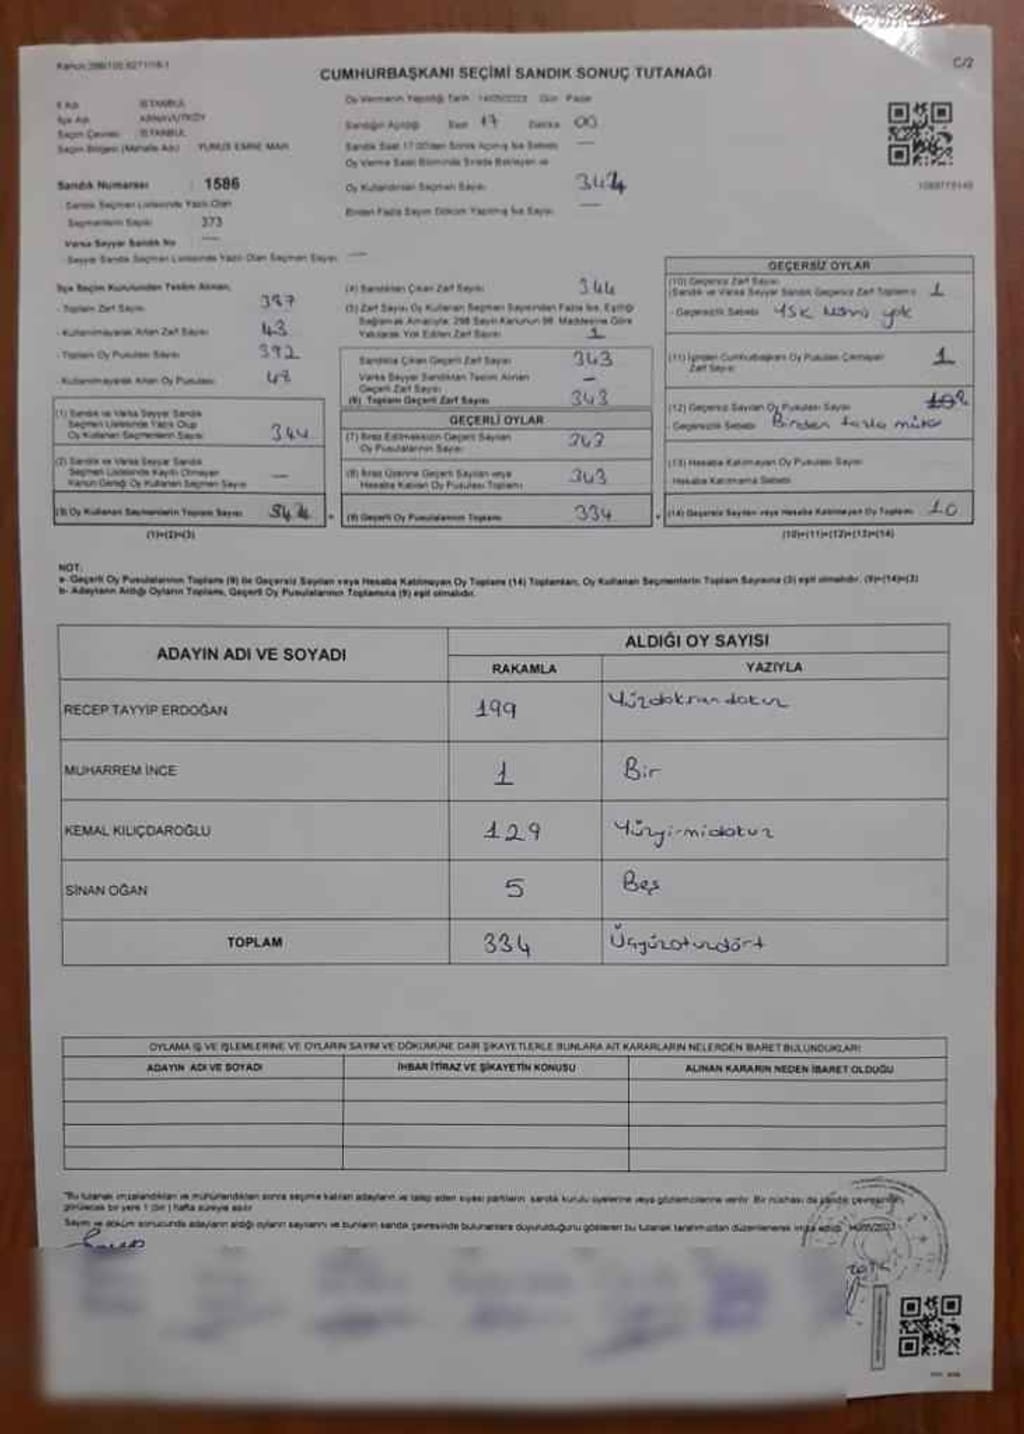 Kanun:298/100,6271/18-1
C/2
CUMHURBAŞKANI SEÇİMİ SANDIK SONUÇ TUTANAĞI
İl Adı : İSTANBUL
İlçe Adı : ARNAVUTKÖY
Seçim Çevresi : İSTANBUL
Seçim Bölgesi (Mahalle Adı) : YUNUS EMRE MAH.
Sandık Numarası : 1586
Sandık Seçmen Listesinde Yazılı Olan
Seçmenlerin Sayısı : 373
Varsa Seyyar Sandık No : —
Seyyar Sandık Seçmen Listesinde Yazılı Olan Seçmen Sayısı : —
Oy Vermenin Yapıldığı Tarih : 14/05/2023 Gün : Pazar
Sandığın Açıldığı Saat : 17 Dakika : 00
Sandık Saat 17.00'den Sonra Açılmış İse Sebebi : —
Oy Verme Saati Bitiminde Sırada Bekleyen ve
Oy Kullandırılan Seçmen Sayısı : 344
Birden Fazla Sayım Döküm Yapılmış İse Sayısı : —
İlçe Seçim Kurulundan Teslim Alınan;
- Toplam Zarf Sayısı : 387
- Kullanılmayarak Artan Zarf Sayısı : 43
- Toplam Oy Pusulası Sayısı : 392
- Kullanılmayarak Artan Oy Pusulası : 48
(1) Sandık ve Varsa Seyyar Sandık
Seçmen Listesinde Yazılı Olup
Oy Kullanan Seçmenlerin Sayısı : 344
(2) Sandık ve Varsa Seyyar Sandık
Seçmen Listesinde Kayıtlı Olmayan
Kanun Gereği Oy Kullanan Seçmen Sayısı : —
(3) Oy Kullanan Seçmenlerin Toplam Sayısı : 344
(1)+(2)=(3)
(4) Sandıktan Çıkan Zarf Sayısı : 344
(5) Zarf Sayısı, Oy Kullanan Seçmen Sayısından Fazla İse, Eşitliği
Sağlamak Amacıyla; 298 Sayılı Kanunun 98. Maddesine Göre
Yakılarak Yok Edilen Zarf Sayısı : 1
Sandıkta Çıkan Geçerli Zarf Sayısı : 343
Varsa Seyyar Sandıktan Teslim Alınan
Geçerli Zarf Sayısı : —
(6) Toplam Geçerli Zarf Sayısı : 343
GEÇERLİ OYLAR
(7) İtiraz Edilmeksizin Geçerli Sayılan
Oy Pusulalarının Sayısı : 343
(8) İtiraz Üzerine Geçerli Sayılan veya
Hesaba Katılan Oy Pusulası Toplamı : 343
(9) Geçerli Oy Pusulalarının Toplamı : 334
GEÇERSİZ OYLAR
(10) Geçersiz Zarf Sayısı
(Sandık ve Varsa Seyyar Sandık Geçersiz Zarf Toplamı) : 1
- Geçersizlik Sebebi : YSK yok
(11) İçinden Cumhurbaşkanı Oy Pusulası Çıkmayan
Zarf Sayısı : 1
(12) Geçersiz Sayılan Oy Pusulası Sayısı
- Geçersizlik Sebebi : Birden fazla mühür
(13) Hesaba Katılmayan Oy Pusulası Sayısı
Hesaba Katılmama Sebebi
(14) Geçersiz Sayılan veya Hesaba Katılmayan Oy Toplamı : 10
(10)+(11)+(12)+(13)=(14)
NOT:
a- Geçerli Oy Pusulalarının Toplamı (9) ile Geçersiz Sayılan veya Hesaba Katılmayan Oy Toplamı (14) Toplamları, Oy Kullanan Seçmenlerin Toplam Sayısına (3) eşit olmalıdır. (9)+(14)=(3)
b- Adayların Aldığı Oyların Toplamı, Geçerli Oy Pusulalarının Toplamına (9) eşit olmalıdır.
ADAYIN ADI VE SOYADI
ALDIĞI OY SAYISI
RAKAMLA YAZIYLA
RECEP TAYYİP ERDOĞAN 199 Yüzdoksandokuz
MUHARREM İNCE 1 Bir
KEMAL KILIÇDAROĞLU 129 Yüzyirmidokuz
SİNAN OĞAN 5 Beş
TOPLAM 334 Üçyüzotuzdört
OYLAMA İŞ VE İŞLEMLERİNE VE OYLARIN SAYIM VE DÖKÜMÜNE DAİR ŞİKAYETLERLE BUNLARA AİT KARARLARIN NELERDEN İBARET BULUNDUKLARI
ADAYIN ADI VE SOYADI İHBAR İTİRAZ VE ŞİKAYETİN KONUSU ALINAN KARARIN NEDEN İBARET OLDUĞU
"Bu tutanak imzalandıktan ve mühürlendikten sonra seçime katılan adayların ve talep eden siyasi partilerin sandık kurulu üyelerine veya gözlemcilerine verilir. Bir nüshası da sandık çevresinin
görülecek bir yere 1 (bir) hafta süreyle asılır.
Sayım ve döküm sonucunda adayların aldığı oyların sayılarını ve bunların sandık çevresinde bulunanlara duyurulduğunu gösteren bu tutanak tarafımızdan düzenlenerek imza edildi. 14/05/2023